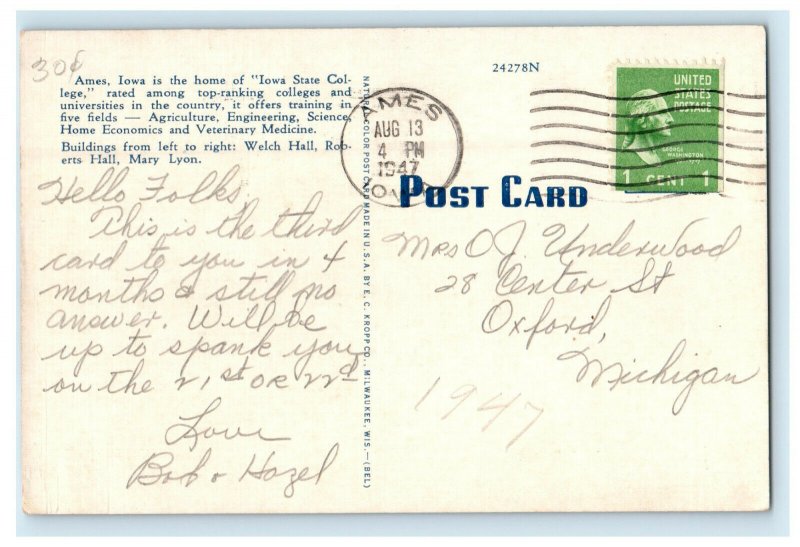 30¢
Ames, Iowa is the home of "Iowa State Col-
lege," rated among top-ranking colleges and
universities in the country, it offers training in
five fields — Agriculture, Engineering, Science,
Home Economics and Veterinary Medicine.
Buildings from left to right: Welch Hall, Rob-
erts Hall, Mary Lyon.
Hello Folks,
This is the third
card to you in 4
months & still no
answer. Will be
up to spank you
on the 21st OR 22nd
Love
Bob & Hazel
NATURAL COLOR POST CARD MADE IN U.S.A. BY E. C. KROPP CO., MILWAUKEE, WIS.—(BEL)
24278N
AMES
AUG 13
4 PM
1947
IOWA
UNITED
STATES
POSTAGE
GEORGE
WASHINGTON
1 CENT 1
POST CARD
Mrs O J. Underwood
28 Center St
Oxford,
Michigan
1947